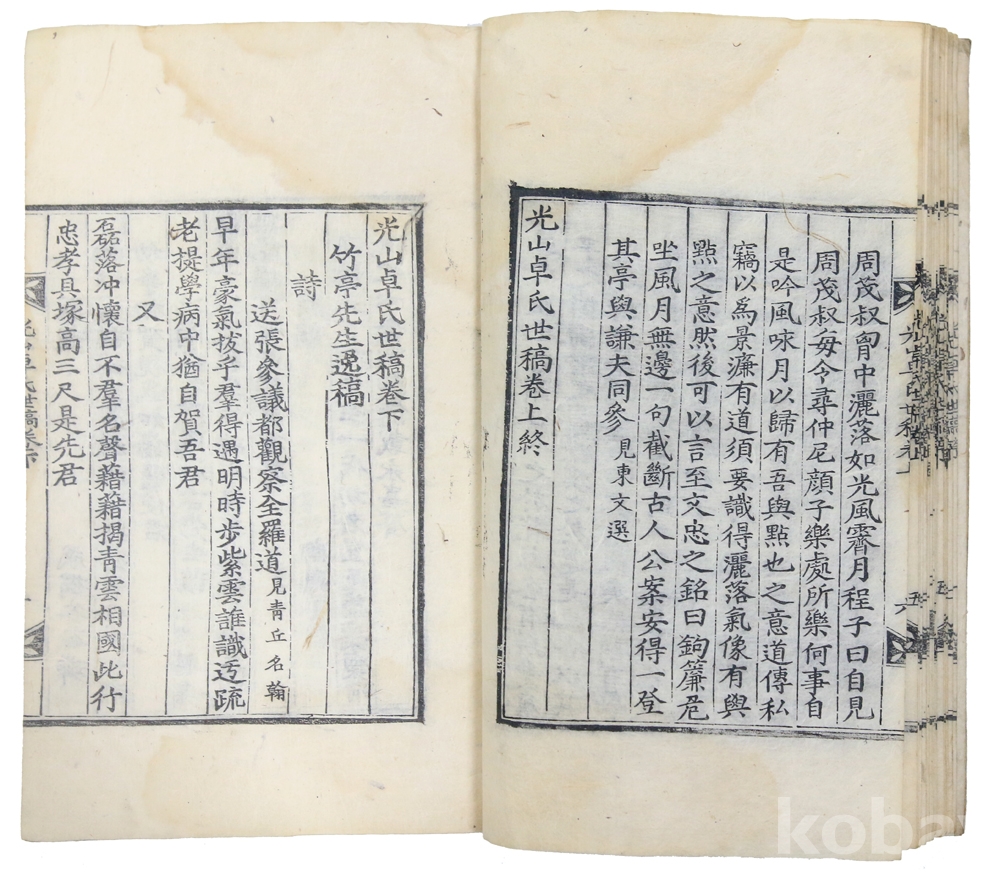 周茂叔胷中灑落如光風霽月程子曰自見
周茂叔每令尋仲尼顔子樂處所樂何事自
是吟風咏月以歸有吾與點也之意道傳私
竊以爲景濂有道須要識得灑落氣像有與
點之意然後可以言至文忠之銘曰鉤簾危
坐風月無邊一句截斷古人公案安得一登
其亭與謙夫同參 見東文選
光山卓氏世稿卷上終
光山卓氏世稿卷下
竹亭先生逸稿
詩
送張參議都觀察全羅道 見靑丘名翰
早年豪氣拔乎羣得遇明時步紫雲誰識迃疏
老提學病中猶自賀吾君
又
磊落冲懷自不羣名聲藉藉揭靑雲相國此行
忠孝具塚高三尺是先君
kobay